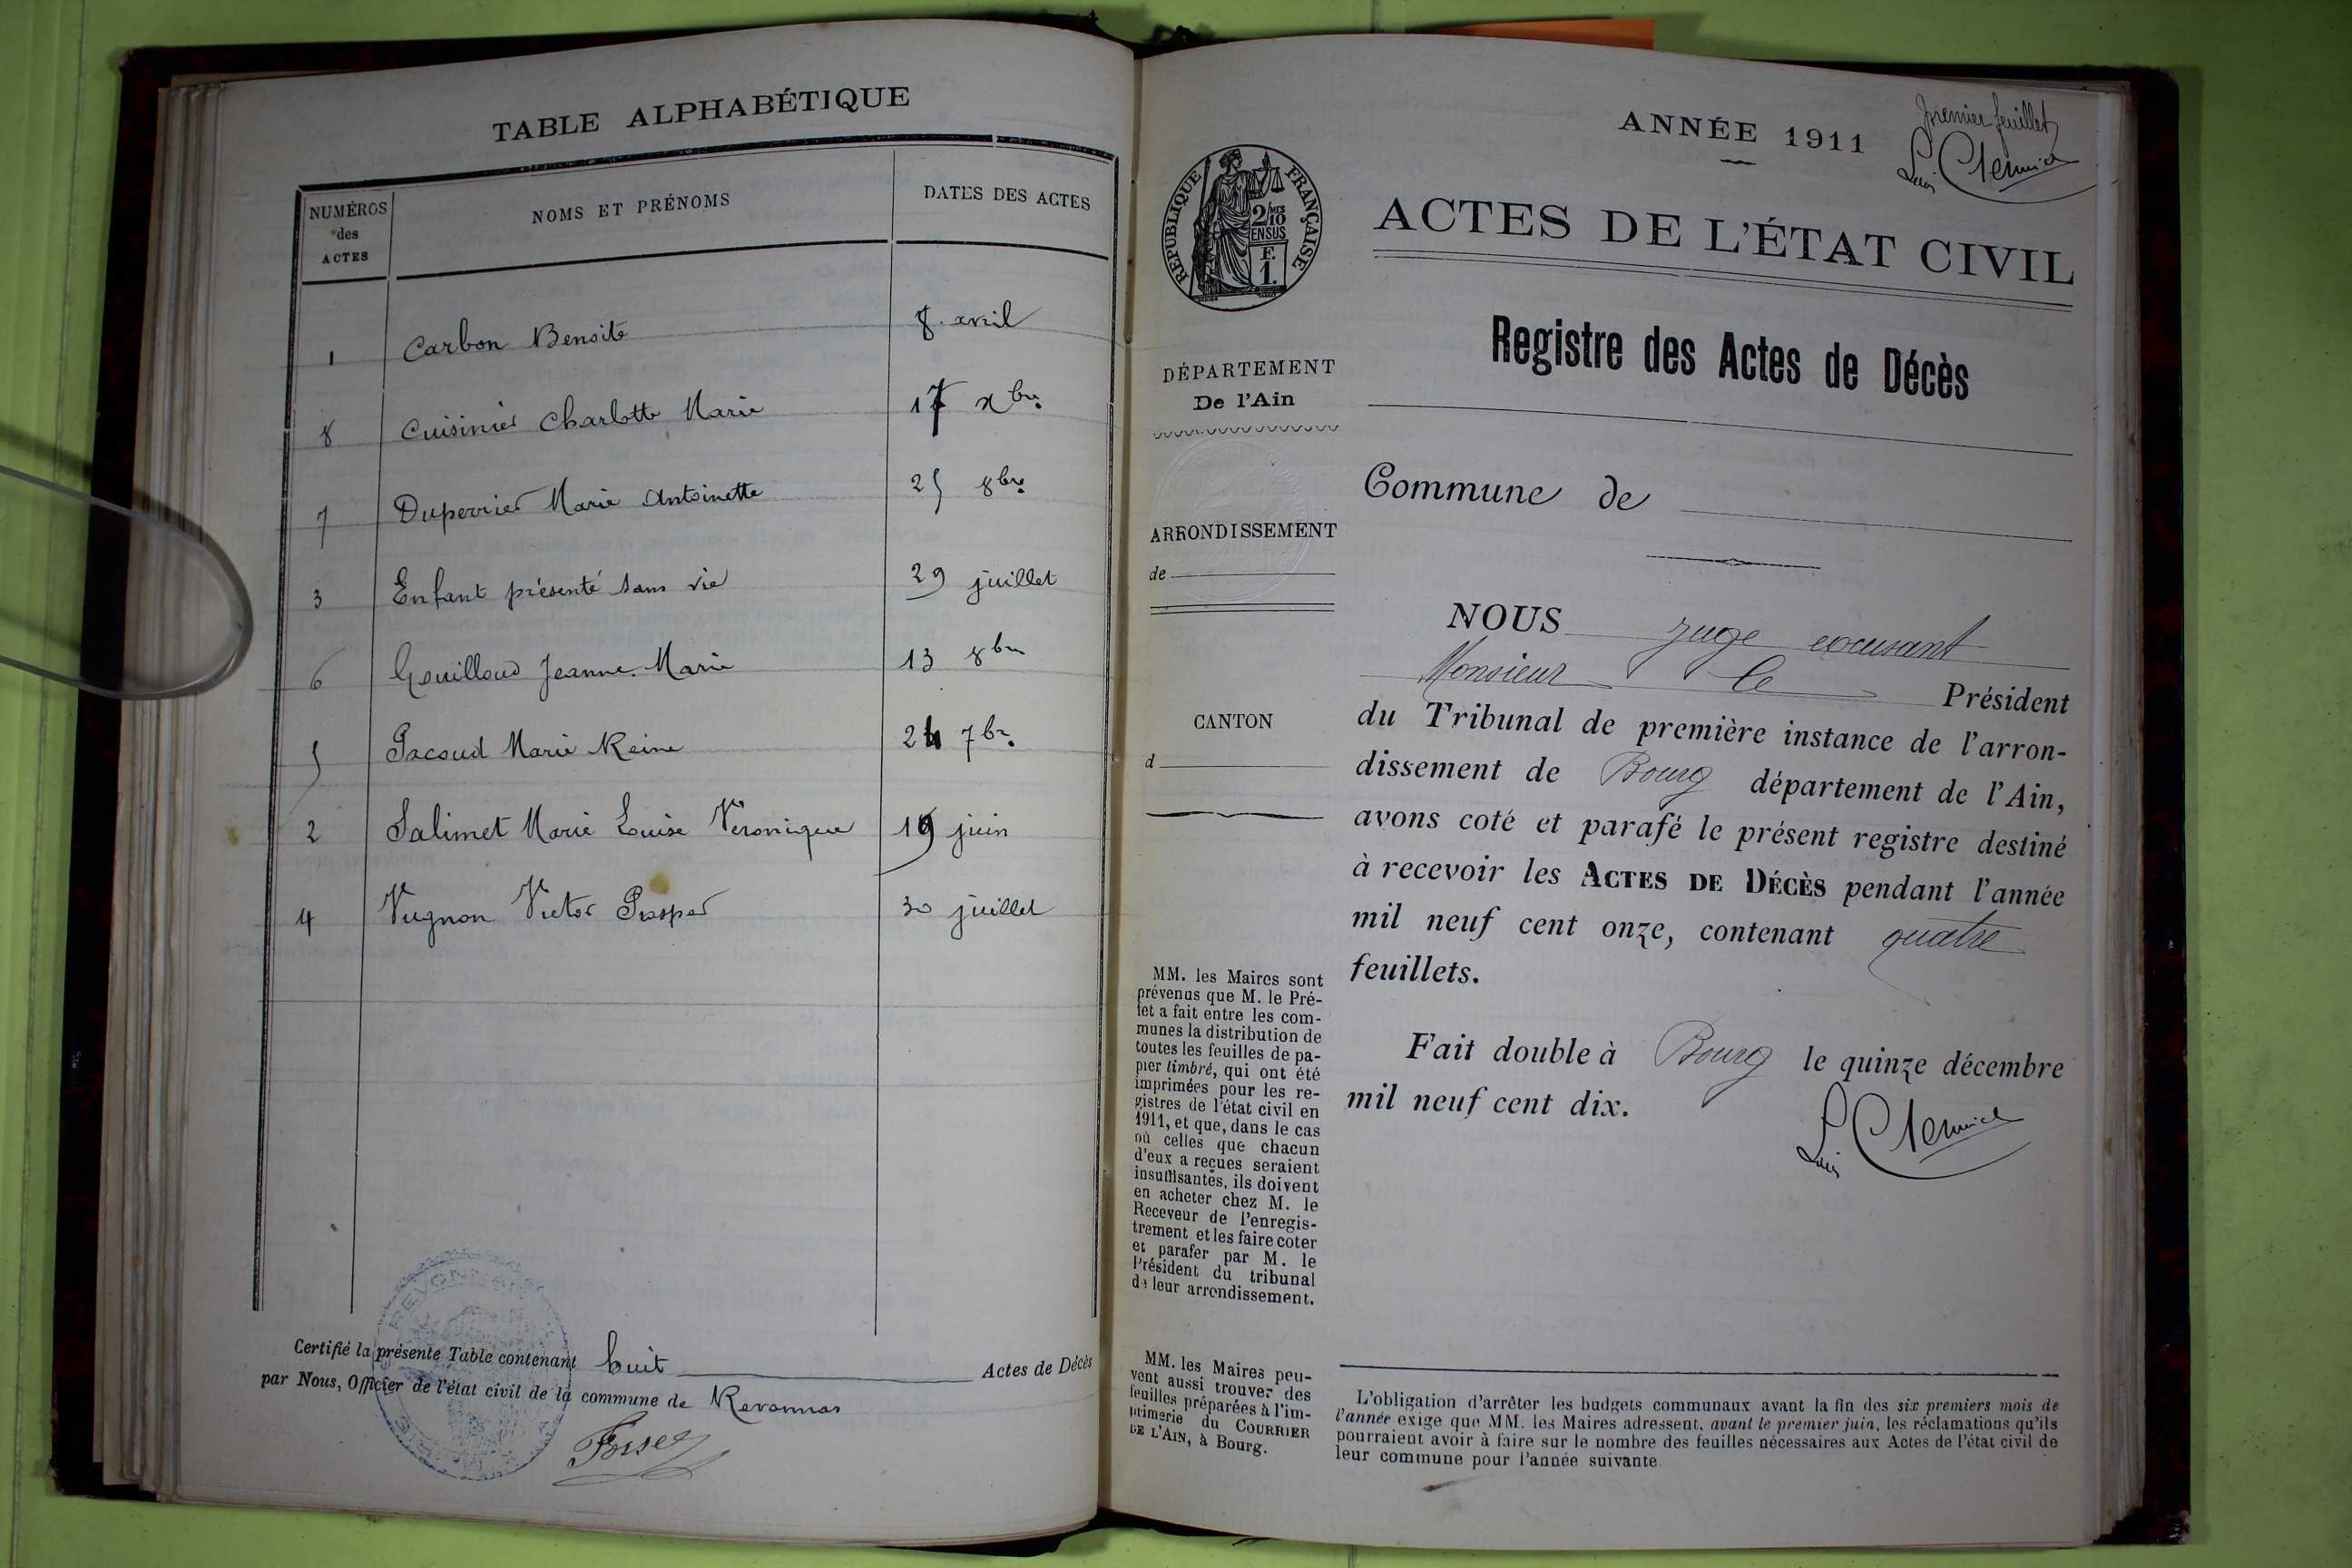 TABLE ALPHABÉTIQUE
NUMÉROS des ACTES
NOMS ET PRÉNOMS
DATES DES ACTES
1 Carbon Benoite 8 avril
8 Cuisinier Charlotte Marie 17 xbre
7 Duperrier Marie Antoinette 25 8bre
3 Enfant présenté sans vie 29 juillet
6 Gouilloud Jeanne Marie 13 8bre
5 Pacoud Marie Reine 24 7bre
2 Salimet Marie Louise Véronique 19 juin
4 Vugnon Victor Prosper 30 juillet
Certifié la présente Table contenant huit Actes de Décès
par Nous, Officier de l'état civil de la commune de Revonnas
REVONNAS
MAIRIE
premier feuillet
ANNÉE 1911
RÉPUBLIQUE FRANÇAISE
2/MES
10
EN SUS
F.
1.
ACTES DE L'ÉTAT CIVIL
Registre des Actes de Décès
DÉPARTEMENT
De l'Ain
ARRONDISSEMENT
de
CANTON
d
MM. les Maires sont
prévenus que M. le Pré-
fet a fait entre les com-
munes la distribution de
toutes les feuilles de pa-
pier timbré, qui ont été
imprimées pour les re-
gistres de l'état civil en
1911, et que, dans le cas
où celles que chacun
d'eux a reçues seraient
insuffisantes, ils doivent
en acheter chez M. le
Receveur de l'enregis-
trement et les faire coter
et parafer par M. le
Président du tribunal
de leur arrondissement.
MM. les Maires peu-
vent aussi trouver des
feuilles préparées à l'im-
primerie du COURRIER
DE L'AIN, à Bourg.
Commune de
NOUS juge excusant
Monsieur le Président
du Tribunal de première instance de l'arron-
dissement de Bourg département de l'Ain,
avons coté et parafé le présent registre destiné
à recevoir les ACTES DE DÉCÈS pendant l'année
mil neuf cent onze, contenant quatre
feuillets.
Fait double à Bourg le quinze décembre
mil neuf cent dix.
L'obligation d'arrêter les budgets communaux avant la fin des six premiers mois de
l'année exige que MM. les Maires adressent, avant le premier juin, les réclamations qu'ils
pourraient avoir à faire sur le nombre des feuilles nécessaires aux Actes de l'état civil de
leur commune pour l'année suivante.